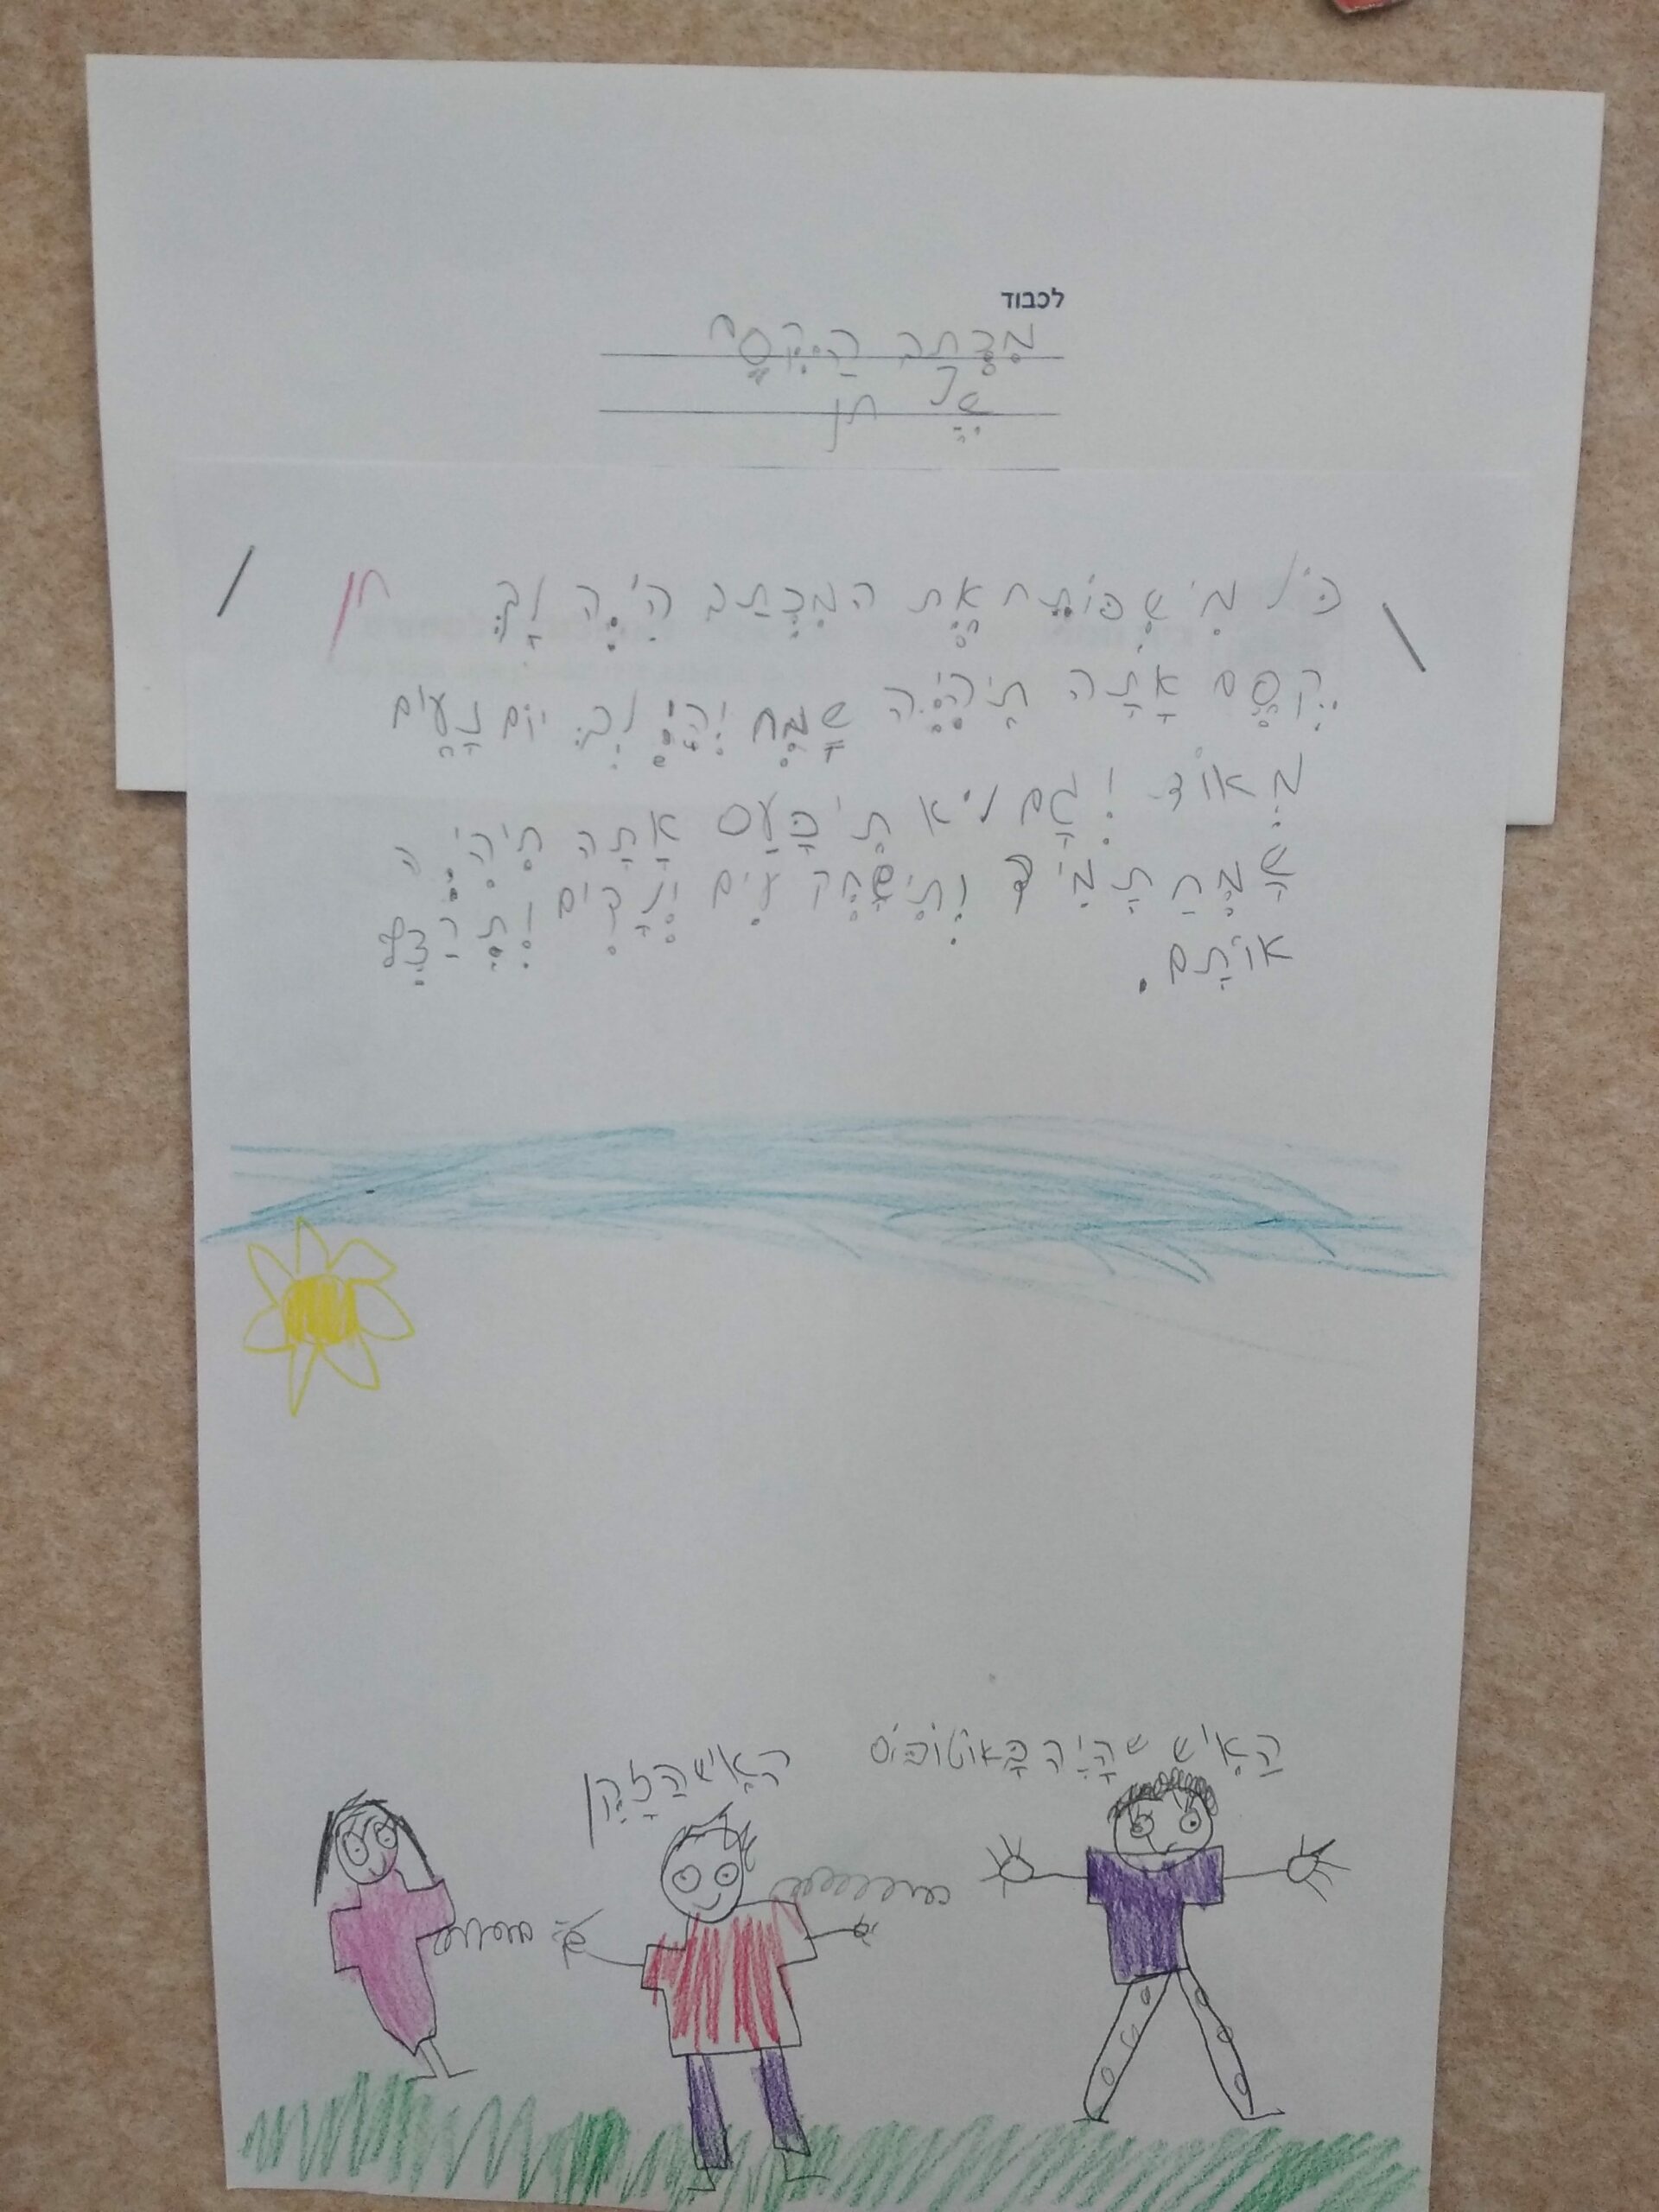 לכבוד
מִכְתַב הַקֶסֶם
שֶל חן
כֹּל מִי שֶפּוֹתֵחַ אֶת המִכְתַב יִהְיֶה לָךְ חן
קֶסֶם אַתָה תִיהְיֶה שָמֵחַ וְיִהְיֶ לְךָ יוֹם נָעִים
מְאוֹד וְגַם לֹא תִיכְעַס אַתָה תִיהְיֶה
שָמֵחַ תָמִיד וְתִישָחֵק עִים יְלָדִים וְתְרַצֶה
אוֹתָם.
הַאִיש שהָיָה בָּאוֹטוֹבּוֹס
האִיש הַזָקֵן